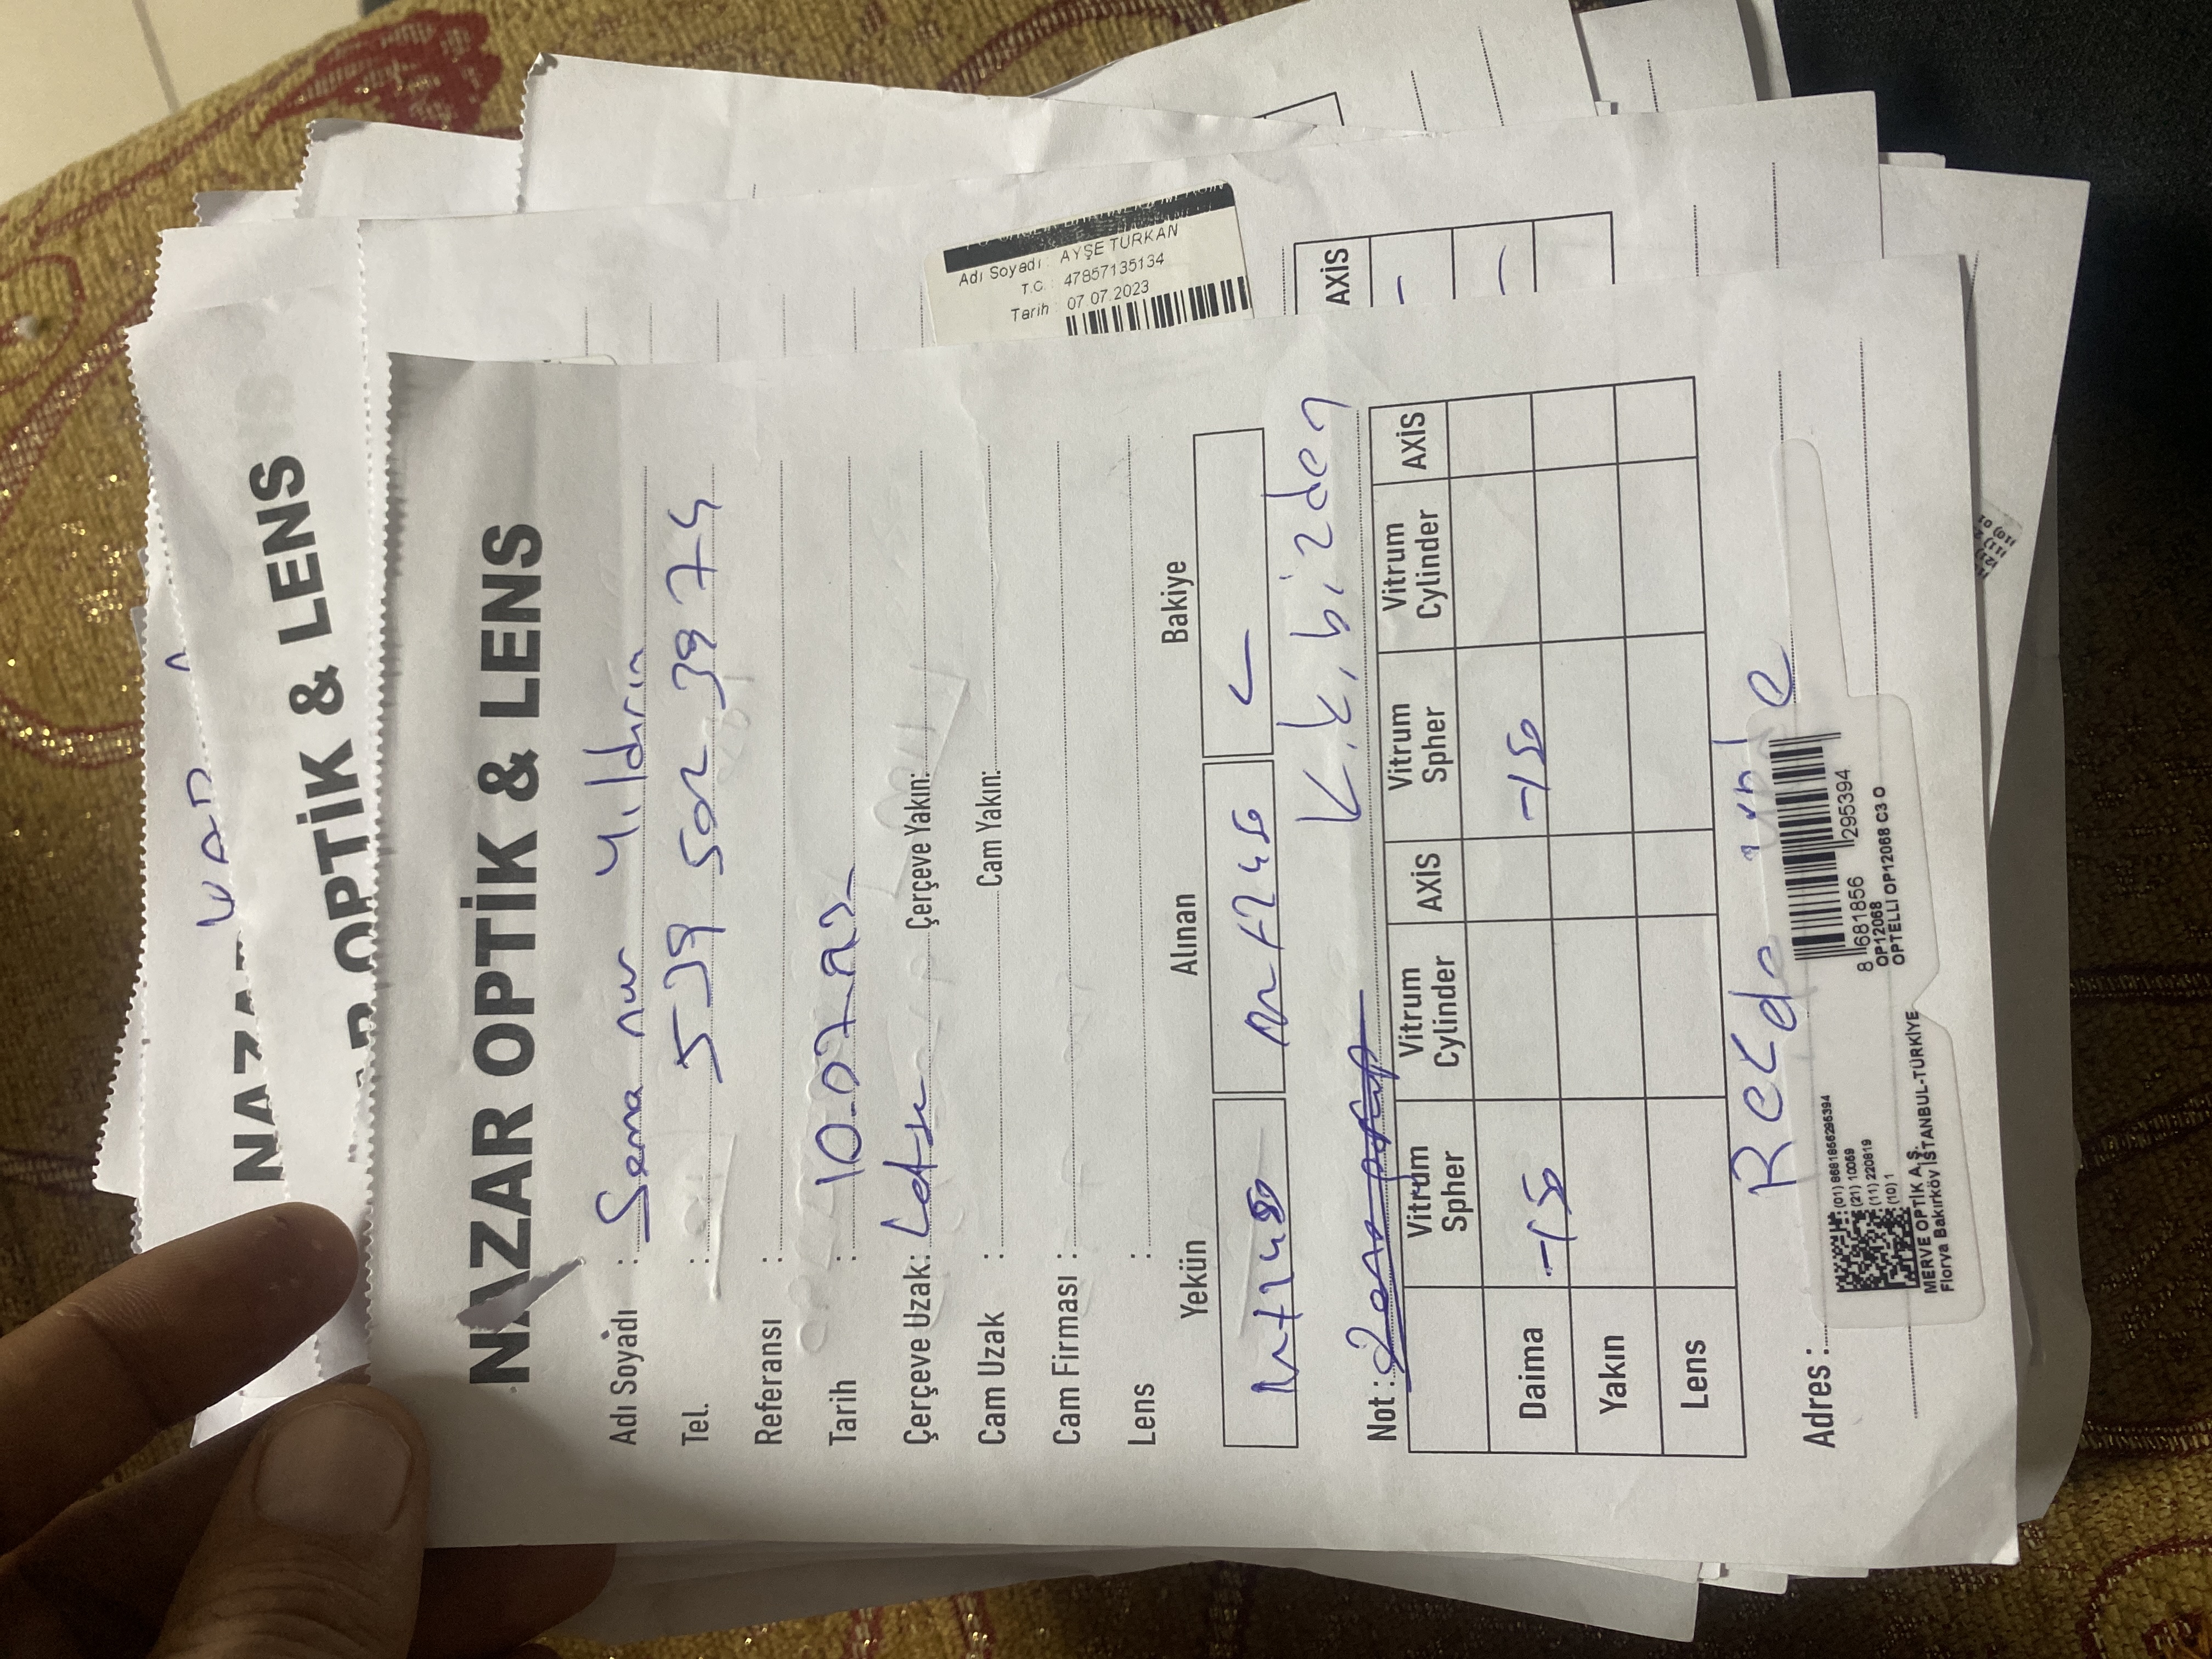 NAZAR OPTİK & LENS
Adı Soyadı : Sema nur Yıldırım
Tel. : 539 502 39 74
Referansı :
Tarih : 10.07.
Çerçeve Uzak: Çerçeve Yakın:
Cam Uzak : Cam Yakın:
Cam Firması :
Lens :
Yekün Alınan Bakiye
K.k. bizden
Not :
Vitrum Spher Vitrum Cylinder AXİS Vitrum Spher Vitrum Cylinder AXİS
Daima -150 -150
Yakın
Lens
Adres :
(01) 8681856295394
(21) 10059
(11) 220819
(10) 1
MERVE OPTİK A.Ş.
Florya Bakırköy İSTANBUL-TÜRKİYE
8 681856 295394
OP12068
OPTELLI OP12068 C3 O
OPTİK & LENS
Adı Soyadı : AYŞE TÜRKAN
T.C. : 47857135134
Tarih 07.07.2023
AXİS